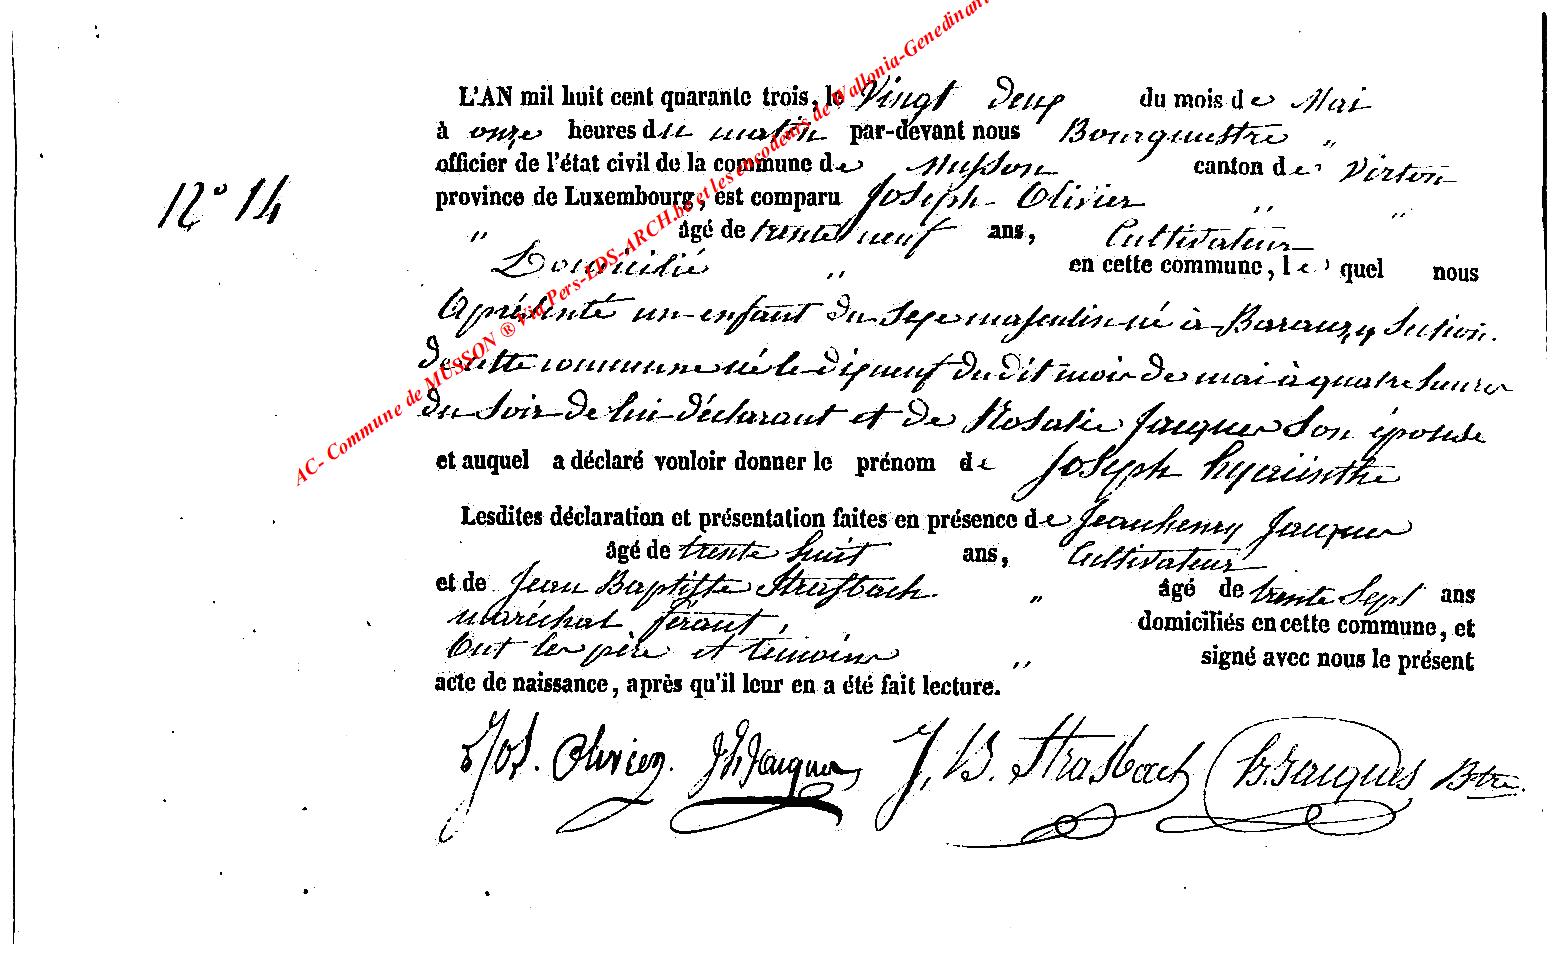 L'AN mil huit cent quarante trois, le Vingt Deux du mois de Mai
à onze heures du matin par-devant nous Bourgmestre "
officier de l'état civil de la commune de Musson canton de Virton
N° 14
province de Luxembourg, est comparu Joseph Olivier " "
" âgé de trente neuf ans, Cultivateur
Domicilié " en cette commune, le quel nous
a présenté un enfant du Sexe masculin né à Baranzy Section
de cette commune né le dix neuf du dit mois de mai à quatre heures
du Soir de lui déclarant et de Rosalie Jacques Son épouse
et auquel a déclaré vouloir donner le prénom de Joseph hyacinthe
Lesdites déclaration et présentation faites en présence de Jean henry Jacques
âgé de trente huit ans, Cultivateur
et de Jean Baptiste Strasbach " âgé de trente Sept ans
maréchal férant, domiciliés en cette commune, et
Ont les père et témoins " signé avec nous le présent
acte de naissance, après qu'il leur en a été fait lecture.
Jos. Olivier. J h Jacques J, B. Strasbach Jacques Btre.
AC- Commune de MUSSON ® Via Pers-EDS-ARCH.be et les encodeurs de Wallonia-Genedinant